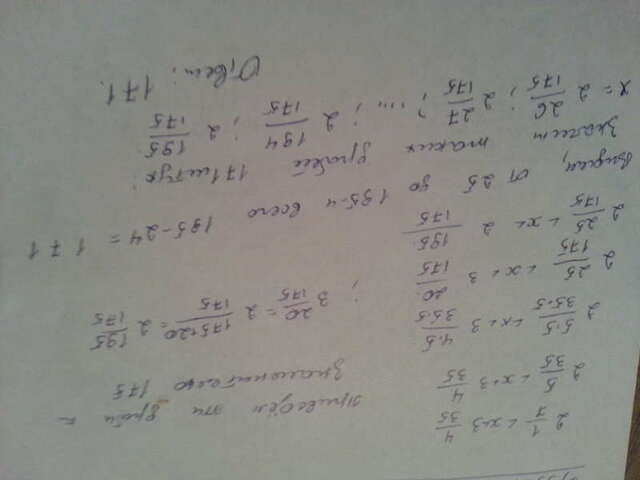 2 1/7 < x < 3 4/35 приведём эти дроби к
2 5/35 < x < 3 4/35 знаменателю 175
2 5·5/35·5 < x < 3 4·5/35·5
2 25/175 < x < 3 20/175 ; 3 20/175 = 2 175+20/175 = 2 195/175
2 25/175 < x < 2 195/175
Видим, от 25 до 195-и всего 195-24 = 171
Значит таких дробей 171 штук:
x = 2 26/175 ; 2 27/175 ; ... ; 2 194/175 ; 2 195/175
Ответ: 171.